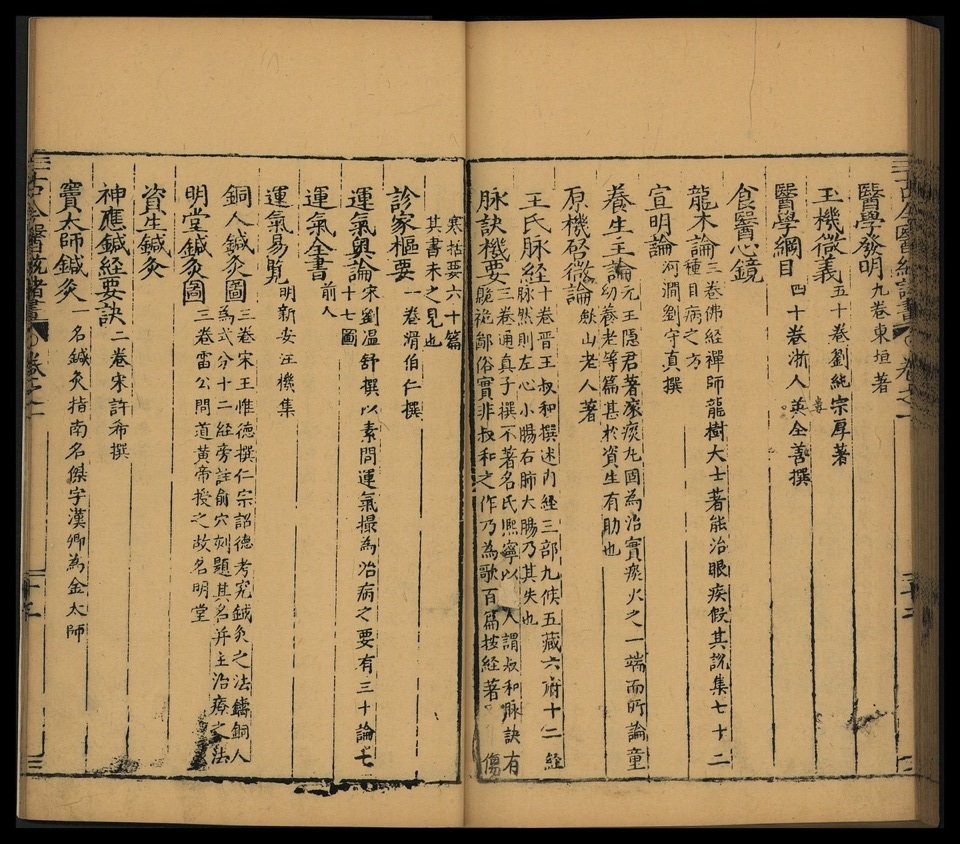 醫學發明九卷東垣著
玉機微義五十卷劉純宗厚著
醫學綱目四十卷浙人英全善撰
食醫心鏡
龍木論三卷佛經禪師龍樹大士著能治眼疾假其說集七十二
種目病之方
宣明論河澗劉守真撰
養生主論元王隱君著家痰九固為治實痰火之一端而所論童
幼養老等篇甚於資生有助也
原機啓微論飲山老人著
王氏脉經十卷晉王叔和撰述內經三部九候五藏六府十二經
脉然則左心小腸右肺大腸乃其失也
脉訣機要三卷通真子撰不著名氏熈寧以 人謂叔和脉訣有
脆祂鄙俗實非叔和之作乃為歌百篇按經著 傷
寒括要六十篇
其書未之見也
診家樞要一卷滑伯仁撰
運氣奧論宋劉溫舒撰以素問運氣撮為治病之要有三十論七
十七圖
運氣全書前人
運氣易覧明新安汪機集
銅人鍼灸圖三卷宋王惟德撰仁宗詔德考究鉞灸之法鑄銅人
為式分十二經旁註俞穴刻題其名并主治療之法
明堂鍼灸圖三卷雷公問道黃帝授之故名明堂
資生鍼灸
神應鍼經要訣二卷宋許希撰
竇太師鍼灸一名鍼灸指南名傑字漢卿為金太師